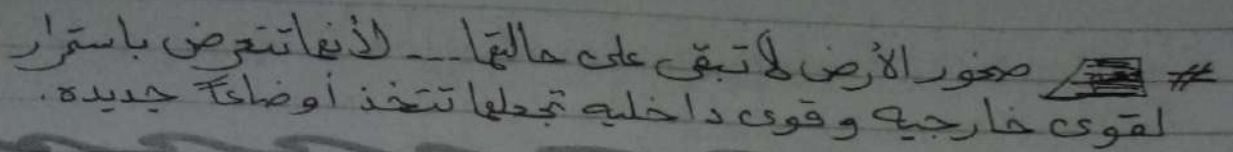 # صخور الأرض لا تبقى على حالتها... لأنها تتعرض باستمرار
لقوى خارجيه وقوى داخليه تجعلها تتخذ أوضاعاً جديده.